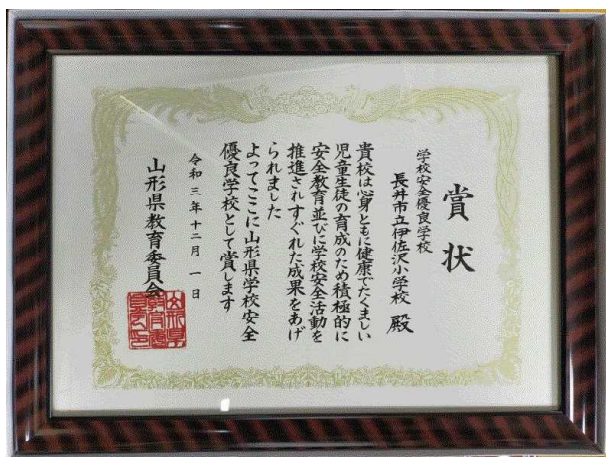 賞状
学校安全優良学校
長井市立伊佐沢小学校 殿
貴校は心身ともに健康でたくましい
児童生徒の育成のため積極的に
安全教育並びに学校安全活動を
推進されすぐれた成果をあげ
られました
よってここに山形県学校安全
優良学校として賞します
令和三年十二月一日
山形県教育委員会